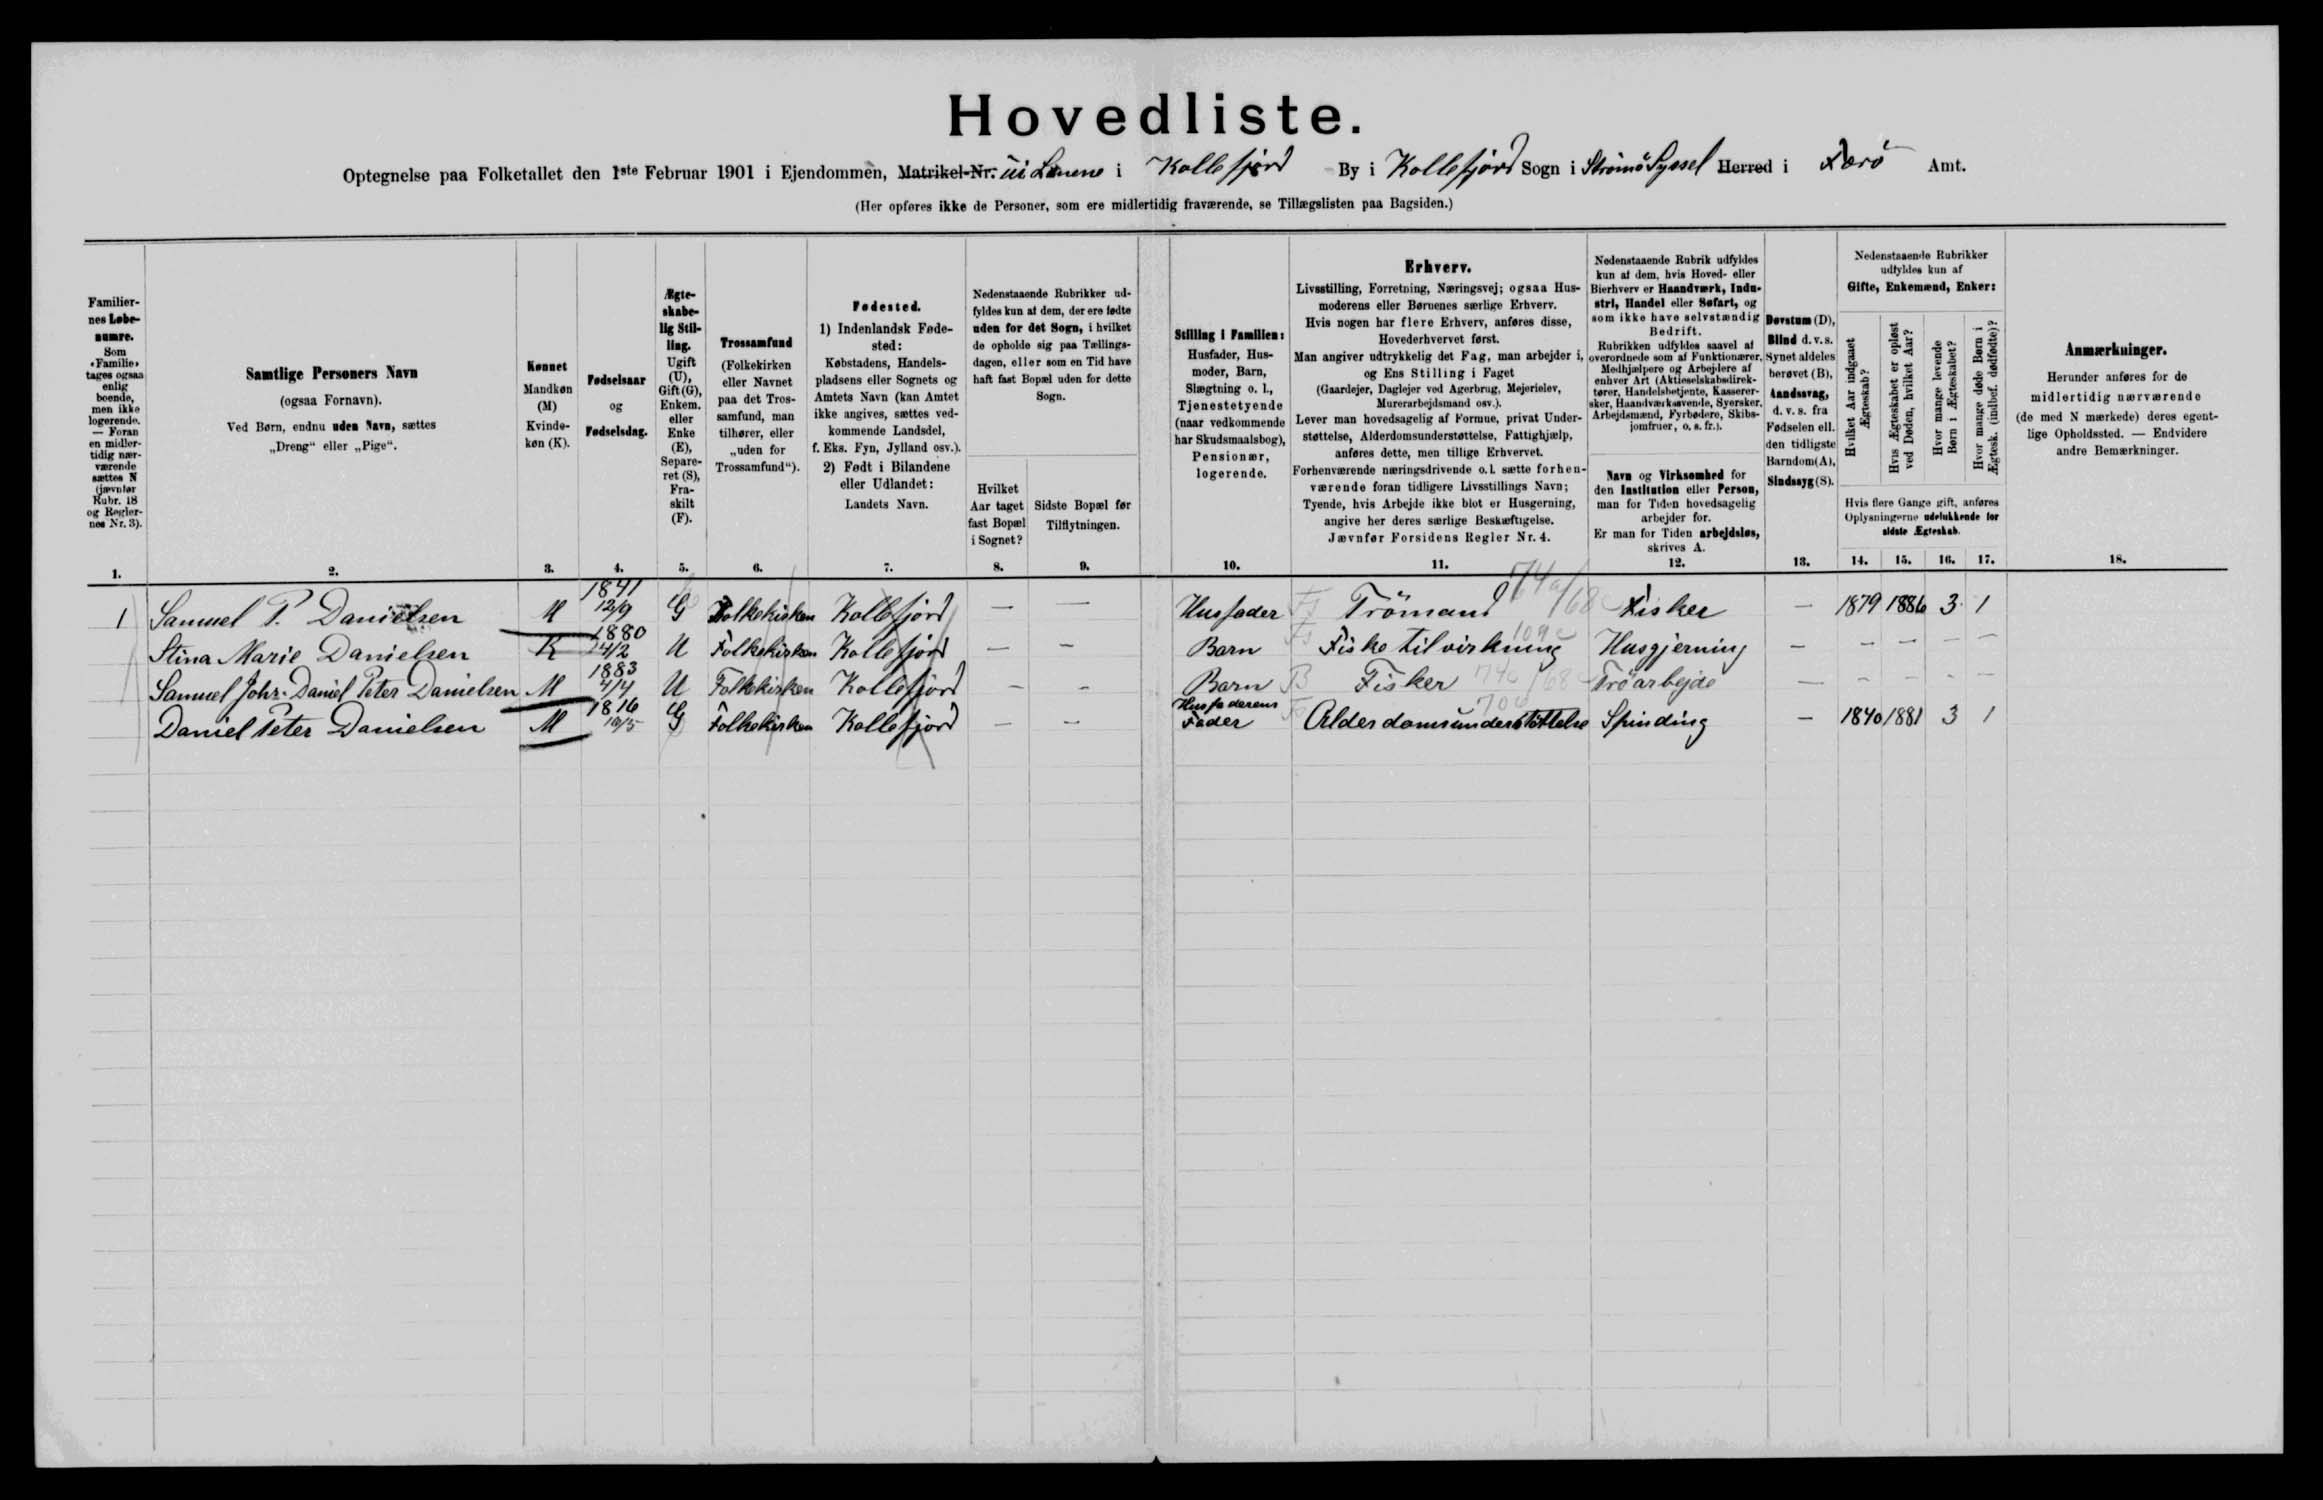 Hovedliste.
Optegnelse paa Folketallet den 1ste Februar 1901 i Ejendommen, Matrikel-Nr. i Kollefjord By i Kollefjord Sogn i Strömö Syssel Herred i Færö Amt.
(Her opføres ikke de Personer, som ere midlertidig fraværende, se Tillægslisten paa Bagsiden.)
Familier-
nes Løbe-
numre.
Som
«Familie»
tages ogsaa
enlig
boende,
men ikke
logerende.
— Foran
en midler-
tidig nær-
værende
sættes N
(jævnfør
Rubr. 18
og Regler-
nes Nr. 3).
1.
Samtlige Personers Navn
(ogsaa Fornavn).
Ved Børn, endnu uden Navn, sættes
„Dreng“ eller „Pige“.
2.
Kønnet
Mandkøn
(M)
Kvinde-
køn (K).
3.
Fødselsaar
og
Fødselsdag.
4.
Ægte-
skabe-
lig Stil-
ling.
Ugift
(U),
Gift (G),
Enkem.
eller
Enke
(E),
Separe-
ret (S),
Fra-
skilt
(F).
5.
Trossamfund
(Folkekirken
eller Navnet
paa det Tros-
samfund, man
tilhører, eller
„uden for
Trossamfund“).
6.
Fødested.
1) IndenlandskFøde-
sted:
Købstadens, Handels-
pladsens eller Sognets og
Amtets Navn (kan Amtet
ikke angives, sættes ved-
kommende Landsdel,
f. Eks. Fyn, Jylland osv.).
2) Født i Bilandene
eller Udlandet:
Landets Navn.
7.
Nedenstaaende Rubrikker ud-
fyldes kun af dem, der ere fødte
uden for det Sogn, i hvilket
de opholde sig paa Tællings-
dagen, eller som en Tid have
haft fast Bopæl uden for dette
Sogn.
Hvilket
Aar taget
fast Bopæl
i Sognet?
8.
Sidste Bopæl før
Tilflytningen.
9.
Stilling i Familien:
Husfader, Hus-
moder, Barn,
Slægtning o. l.,
Tjenestetyende
(naar vedkommende
har Skudsmaalsbog),
Pensionær,
logerende.
10.
Erhverv.
Livsstilling, Forretning, Næringsvej; ogsaa Hus-
moderens eller Børnenes særlige Erhverv.
Hvis nogen har flere Erhverv, anføres disse,
Hovederhvervet først.
Man angiver udtrykkelig det Fag, man arbejder i,
og Ens Stilling i Faget
(Gaardejer, Daglejer ved Agerbrug, Mejerielev,
Murerarbejdsmand osv.).
Lever man hovedsagelig af Formue, privat Under-
støttelse, Alderdomsunderstøttelse, Fattighjælp,
anføres dette, men tillige Erhvervet.
Forhenværende næringsdrivende o. l. sætte forhen-
værende foran tidligere Livsstillings Navn;
Tyende, hvis Arbejde ikke blot er Husgerning,
angive her deres særlige Beskæftigelse.
Jævnfør Forsidens Regler Nr. 4.
11.
Nedenstaaende Rubrik udfyldes
kun af dem, hvis Hoved- eller
Bierhverv er Haandværk, Indu-
stri, Handel eller Søfart, og
som ikke have selvstændig
Bedrift.
Rubrikken udfyldes saavel af
overordnede som af Funktionærer,
Medhjælpere og Arbejdere af
enhver Art (Aktieselskabsdirek-
tører, Handelsbetjente, Kasserer-
sker, Haandværkssvende, Syersker,
Arbejdsmænd, Fyrbødere, Skibs-
jomfruer, o. s. fr.).
Navn og Virksomhed for
den Institution eller Person,
man for Tiden hovedsagelig
arbejder for.
Er man for Tiden arbejdsløs,
skrives A.
12.
Døvstum (D),
Blind d. v. s.
Synet aldeles
berøvet (B),
Aandssvag,
d. v. s. fra
Fødselen ell.
den tidligste
Barndom (A),
Sindssyg (S).
13.
Nedenstaaende Rubrikker
udfyldes kun af
Gifte, Enkemænd, Enker:
Hvilket Aar indgaaet
Ægteskab?
Hvis Ægteskabet er opløst
ved Døden, hvilket Aar?
Hvor mange levende
Børn i Ægteskabet?
Hvor mange døde Børn i
Ægtesk. (indbef. dødfødte)?
Hvis flere Gange gift, anføres
Oplysningerne udelukkende for
sidste Ægteskab.
14. 15. 16. 17.
Anmærkninger.
Herunder anføres for de
midlertidig nærværende
(de med N mærkede) deres egent-
lige Opholdssted. — Endvidere
andre Bemærkninger.
18.
1 Samuel P. Danielsen M 1841 12/9 G Folkekirken Kollefjord — — Husfader Trömand Fisker — 1879 1886 3 1
Stina Marie Danielsen K 1880 14/2 U Folkekirken Kollefjord — — Barn Fisketilvirkning 109c Husgjerning — — — — —
Samuel Johs. Daniel Peter Danielsen M 1883 4/4 U Folkekirken Kollefjord — — Barn Fisker Tröarbejde — — — — —
Daniel Peter Danielsen M 1816 G Folkekirken Kollefjord — — Husfaderens Fader Alderdomsunderstöttelse Spinding — 1840 1881 3 1